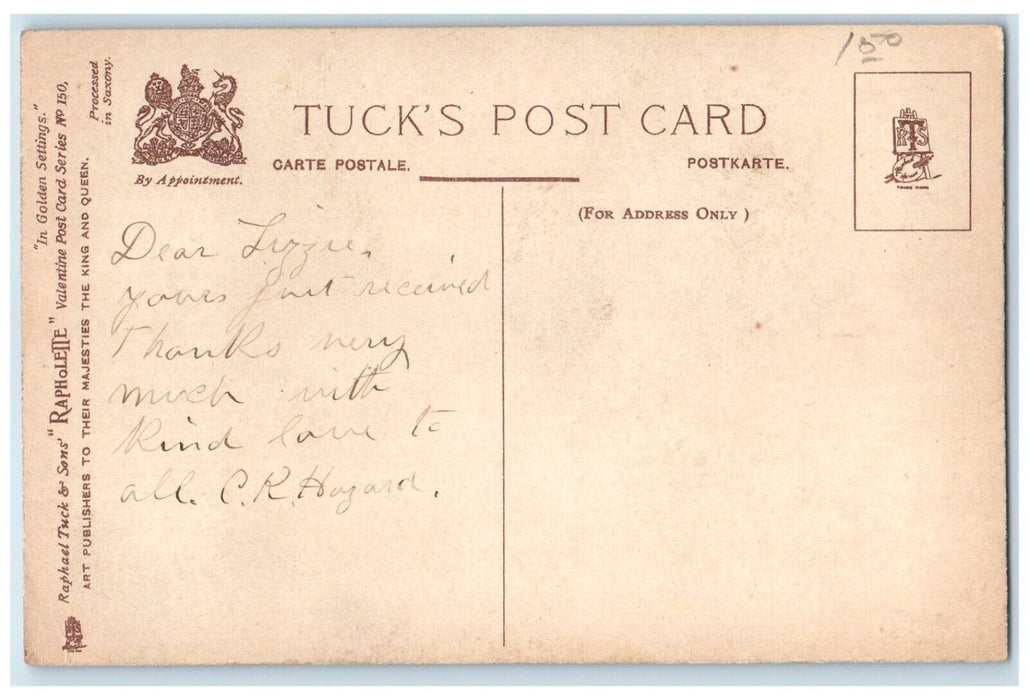 "In Golden Settings."
Raphael Tuck & Sons' "RAPHOLETTE" Valentine Post Card Series No 150,
ART PUBLISHERS TO THEIR MAJESTIES THE KING AND QUEEN.
Processed
in Saxony.
By Appointment.
TUCK'S POST CARD
CARTE POSTALE.
POSTKARTE.
(FOR ADDRESS ONLY)
150
RTS
TRADE MARK
Dear Lizzie,
yours just received
Thanks very
much with
kind love to
all. C. R. Hazard.